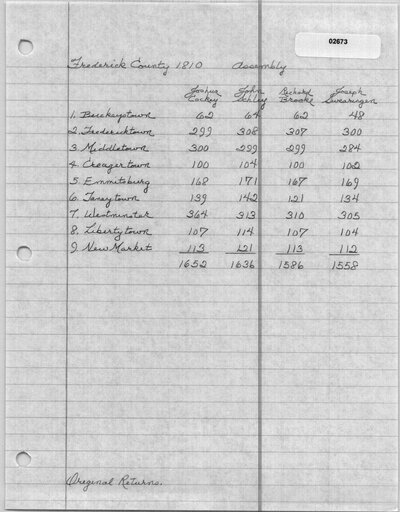 02673
Frederick County 1810 Assembly
Joshua John Richard Joseph
Cockey Schley Brooke Swearingen
1. Buckeystown 62 64 62 48
2. Fredericktown 299 308 307 300
3. Middletown 300 299 299 284
4. Creagertown 100 104 100 102
5. Emmitsburg 168 171 167 169
6. Taneytown 139 142 121 134
7. Westminster 364 313 310 305
8. Libertytown 107 114 107 104
9. New Market 113 121 113 112
1652 1636 1586 1558
Original Returns.